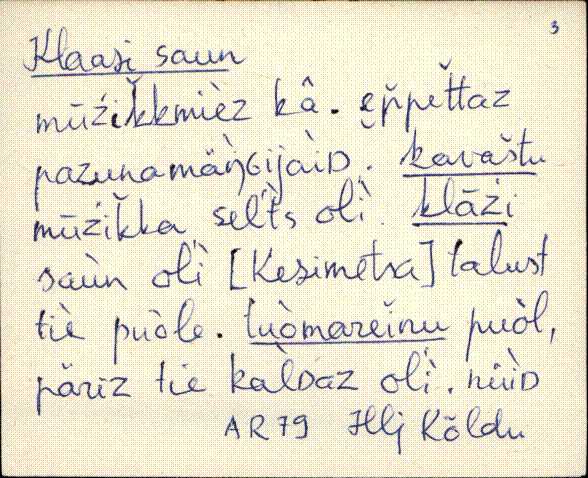 3
Klaasi saun
mūźik̆kmìez kâ. ĕp̆pet̆taz
pazunamäǹGijàiD. kavaštu
mūźik̆ka sel'ts olì. klāźi
saùn olì [Kesimetsa] talust
tiè puòle. tuòmareinu puòl,
päriz tiè kaLDaz olì. nǜiD
AR79 Hlj Kõldu